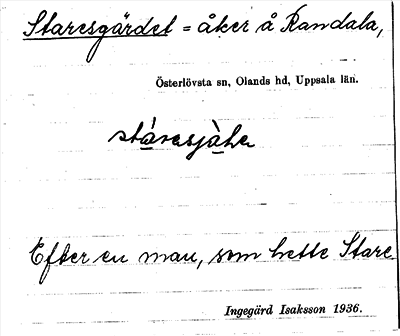 Staresgärdet = åker å Randala,
Österlövsta sn, Olands hd, Uppsala län.
Efter en man, som hette Stare.
Ingegärd Isaksson 1936.